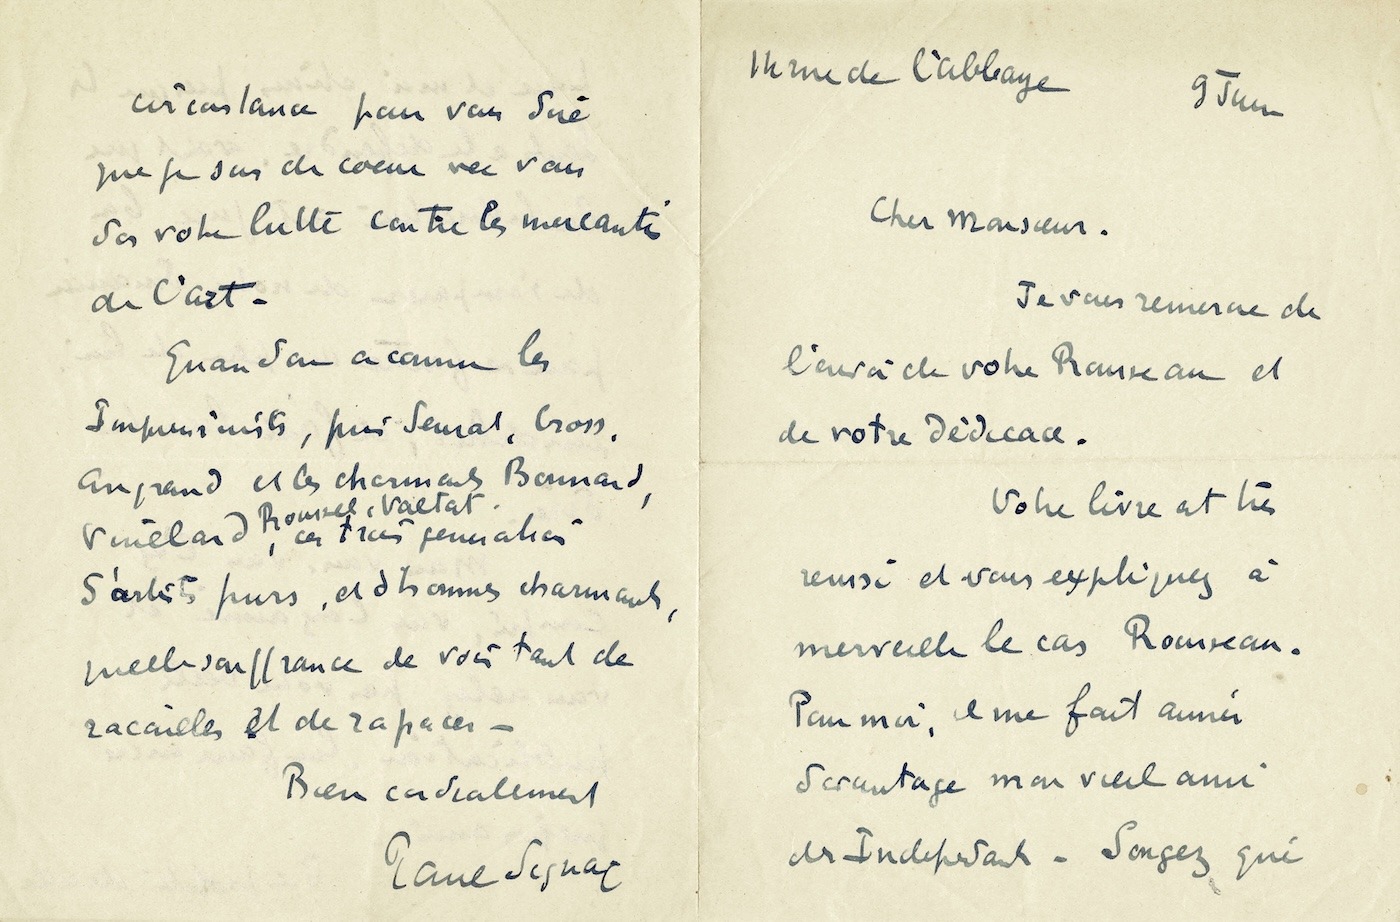 14 rue de l'abbaye
9 Juin
Cher Monsieur.
Je vous remercie de
l'envoi de votre Rousseau et
de votre Dédicace.
Votre livre est très
reussi et vous expliquez à
merveille le cas Rousseau.
Pour moi, il me fait aimer
davantage mon vieil ami
des Indépendants - Songez que
circonstance pour vous dire
que je suis de coeur avec vous
dans votre lutte contre les mercantis
de l'art -
Quand on a connu les
Impressionnistes, puis Seurat, Cross,
Angrand et les charmants Bonnard,
Vuillard, Roussel, Valtat. ces trois générations
d'artistes purs, et d'hommes charmants,
quelle souffrance de voir tant de
racailles et de rapaces -
Bien cordialement
Paul Signac